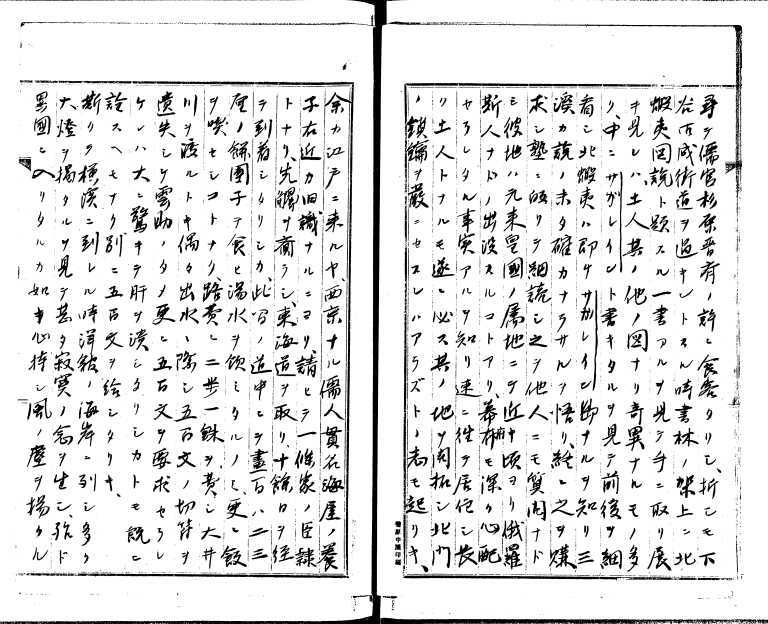 尋テ儒官杉原晋有ノ許ニ食客タリシ、折シモ下
谷古成街道ヲ過キントスル時書林ノ架上ニ北
蝦夷図説ト題スル一書アルヲ見テ手ニ取リ展
ヲ見レハ土人其ノ他ノ図ナリ奇異ナルモノ多
リ、中ニサガレイント書キタルヲ見テ前後ヲ細
看シ北蝦夷ハ即チサガレイン島ナルヲ知リ三
渓カ説ノ未タ確カナラサルヲ悟リ、終ニ之ヲ購
求シ塾ニ帰リテ細読シ之ヲ他人ニモ質問ナド
シ彼地ハ元来皇国ノ属地ニテ近頃ヨリ俄羅
斯人ナドノ出没スルコトアリ、幕府モ深ク心配
セラレタル事実アルヲ知リ速ニ往テ居住シ長
リ土人トナルモ遂ニ必ス其ノ地ヲ開拓シ北門
ノ鎖鑰ヲ厳ニセスンハアラズトノ志モ起リキ、
余カ江戸ニ来ルヤ、西京ナル儒人貫名海屋ノ養
子右近カ旧識ナルニヨリ、請ヒテ一條家ノ臣隷
トナリ、先觸ヲ齎ラシ、東海道ヲ取リ、十餘日ヲ経
テ到着シタリシカ、此ノ道中ニテ昼ハ二三
度ノ餘団子ヲ食ヒ湯水ヲ飲ミタルノミ、更ニ飯
ヲ喫セシコトナリ、路費ニ二歩一銖ヲ費シ大井
川ヲ渡ルトキ偶々出水ニ際シ五百文ノ切符ヲ
遺失シテ雲助ノタメ更ニ五百文ヲ要求セラレ
ケレハ大ニ驚キテ肝ヲ潰シタリシカトモ既ニ
詮スヘモナク別ニ五百文ヲ給シタリキ、
斯リテ横濱ニ到レル時洋舩ノ海岸ニ列シ多ク
大燈ヲ揚タルヲ見テ甚タ寂寞ノ念ヲ生シ、殆ド
異國ニ入リタルカ如キ心持シ風ノ塵ヲ揚クル